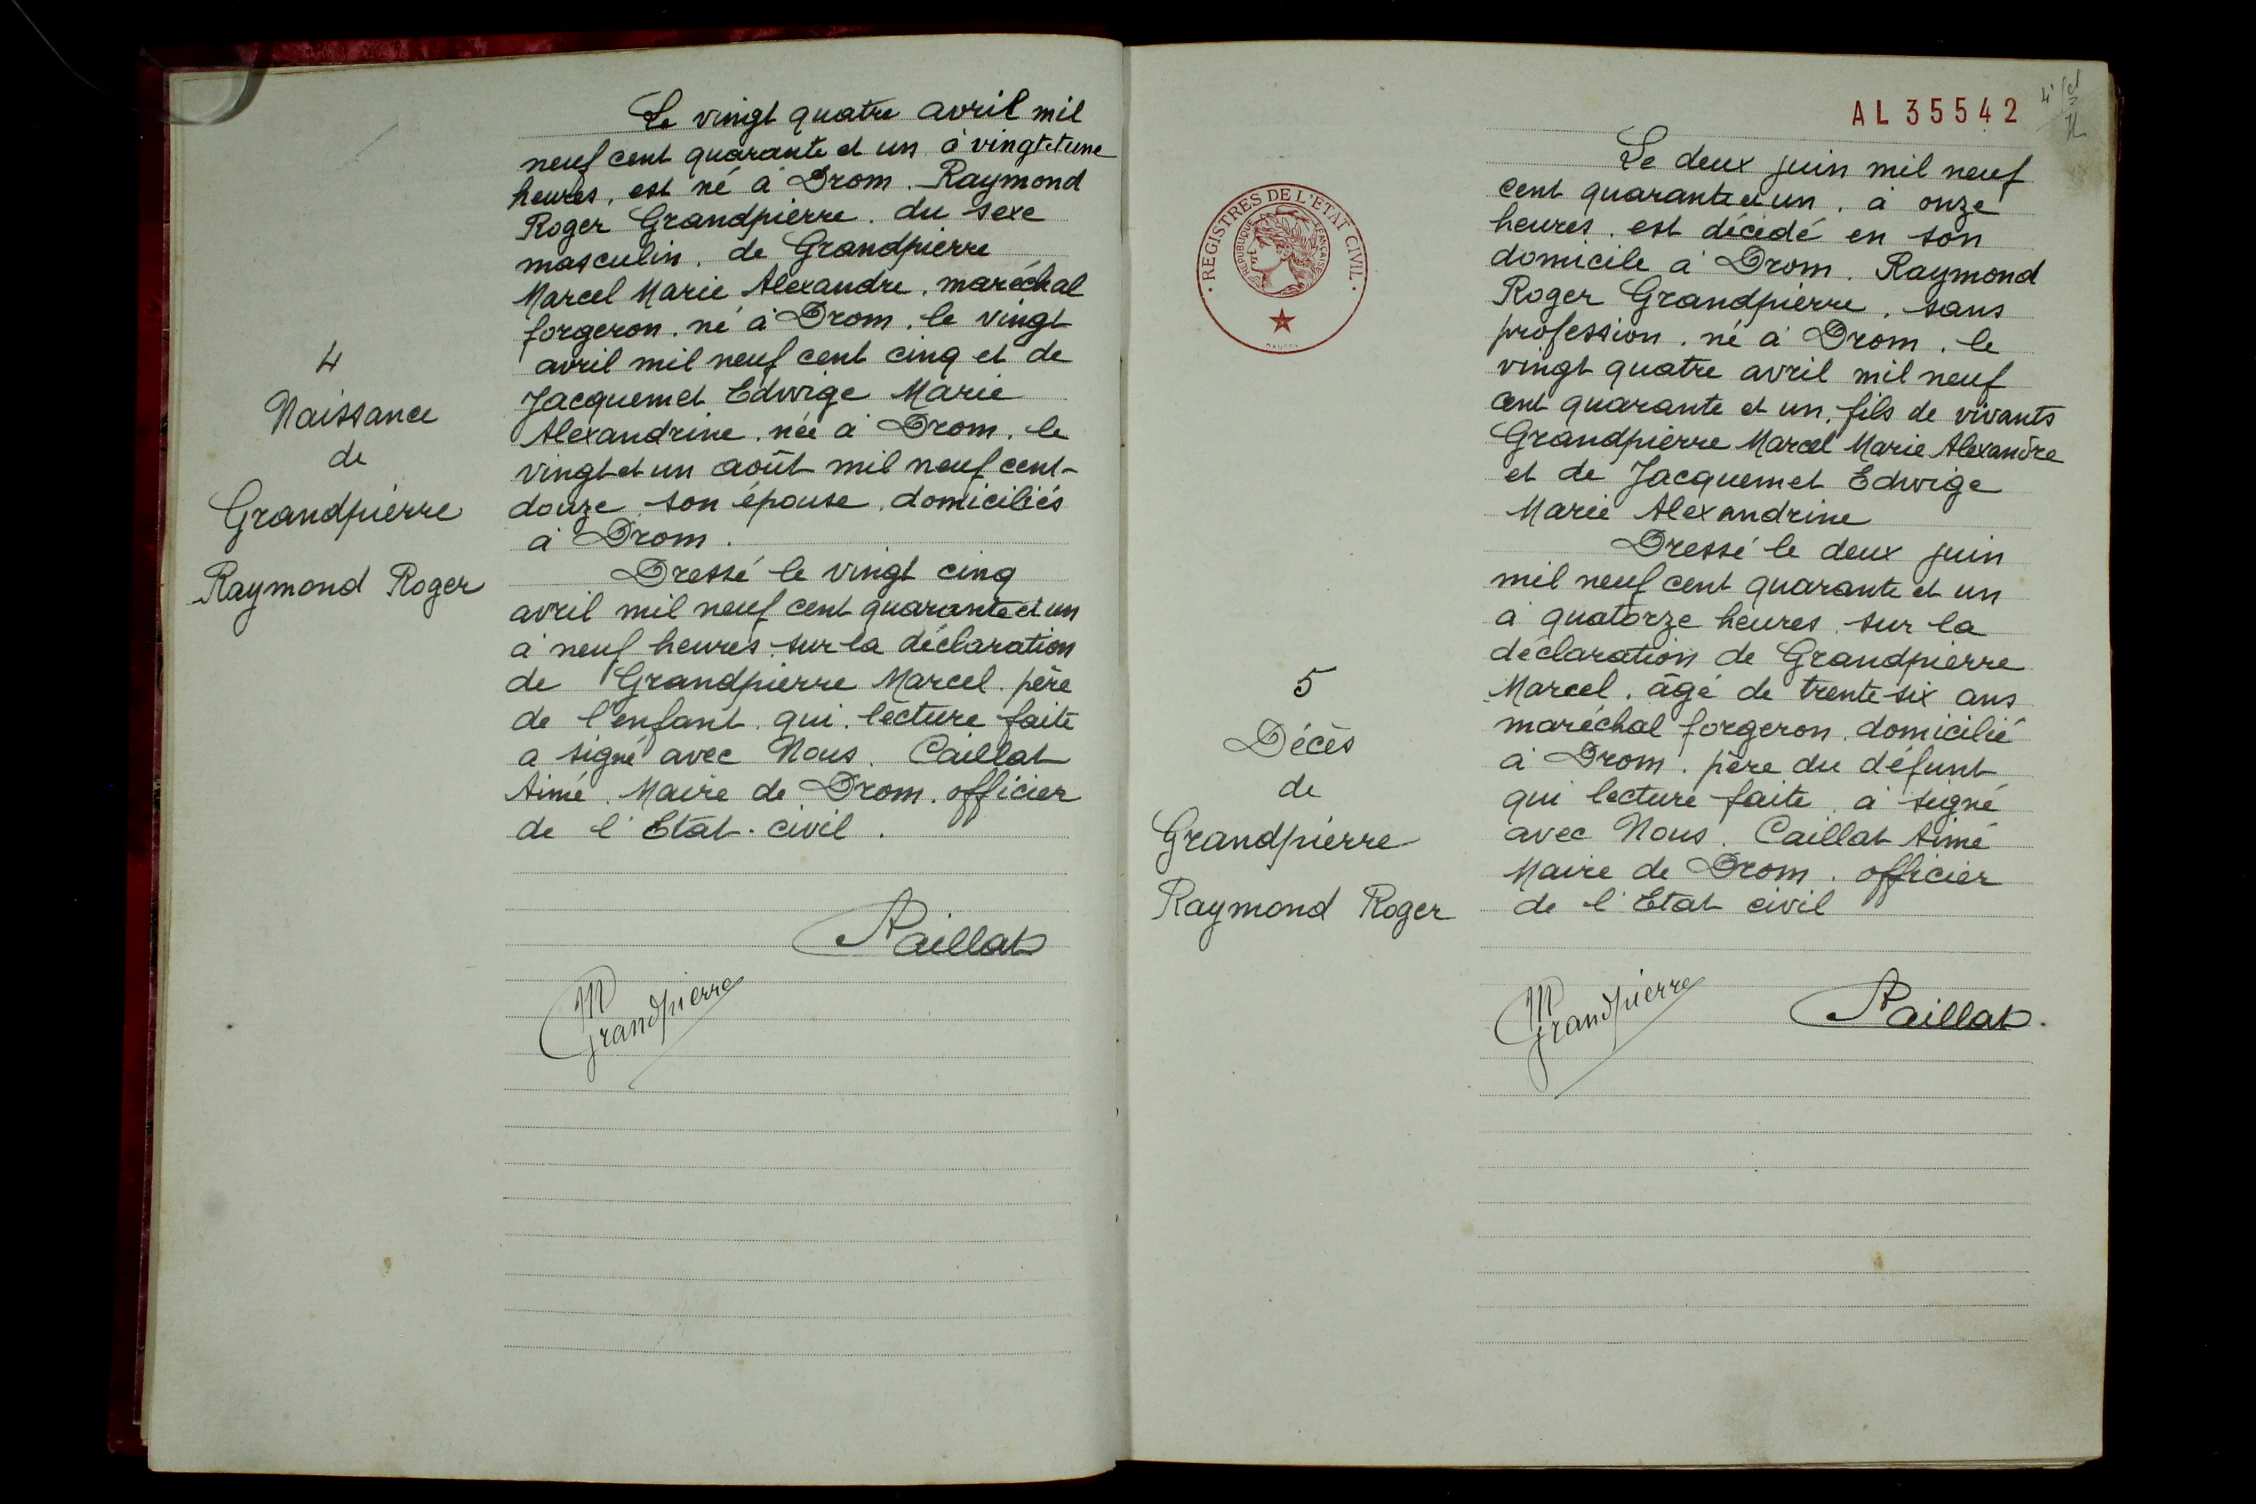 4
Naissance
de
Grandpierre
Raymond Roger
Le vingt quatre avril mil
neuf cent quarante et un à vingt et une
heures, est né à Drom. Raymond
Roger Grandpierre. du sexe
masculin, de Grandpierre
Marcel Marie Alexandre, maréchal
forgeron, né à Drom, le vingt
avril mil neuf cent cinq et de
Jacquemet Edwige Marie
Alexandrine, née à Drom, le
vingt et un août mil neuf cent-
douze, son épouse, domiciliés
à Drom.
Dressé le vingt cinq
avril mil neuf cent quarante et un
à neuf heures, sur la déclaration
de Grandpierre Marcel. père
de l'enfant, qui, lecture faite
a signé avec Nous. Caillat
Aimé, Maire de Drom, officier
de l'Etat-civil.
ACaillat
M Grandpierre
AL 35542
REGISTRES DE L'ETAT CIVIL
REPUBLIQUE FRANÇAISE
5
Décès
de
Grandpierre
Raymond Roger
Le deux juin mil neuf
cent quarante et un, à onze
heures, est décédé en son
domicile à Drom. Raymond
Roger Grandpierre, sans
profession, né à Drom, le
vingt quatre avril mil neuf
cent quarante et un, fils de vivants
Grandpierre Marcel Marie Alexandre
et de Jacquemet Edwige
Marie Alexandrine
Dressé le deux juin
mil neuf cent quarante et un
à quatorze heures, sur la
déclaration de Grandpierre
Marcel, âgé de trente-six ans
maréchal forgeron, domicilié
à Drom, père du défunt
qui lecture faite, a signé
avec Nous. Caillat Aimé
Maire de Drom, officier
de l'Etat civil
M Grandpierre
ACaillat.